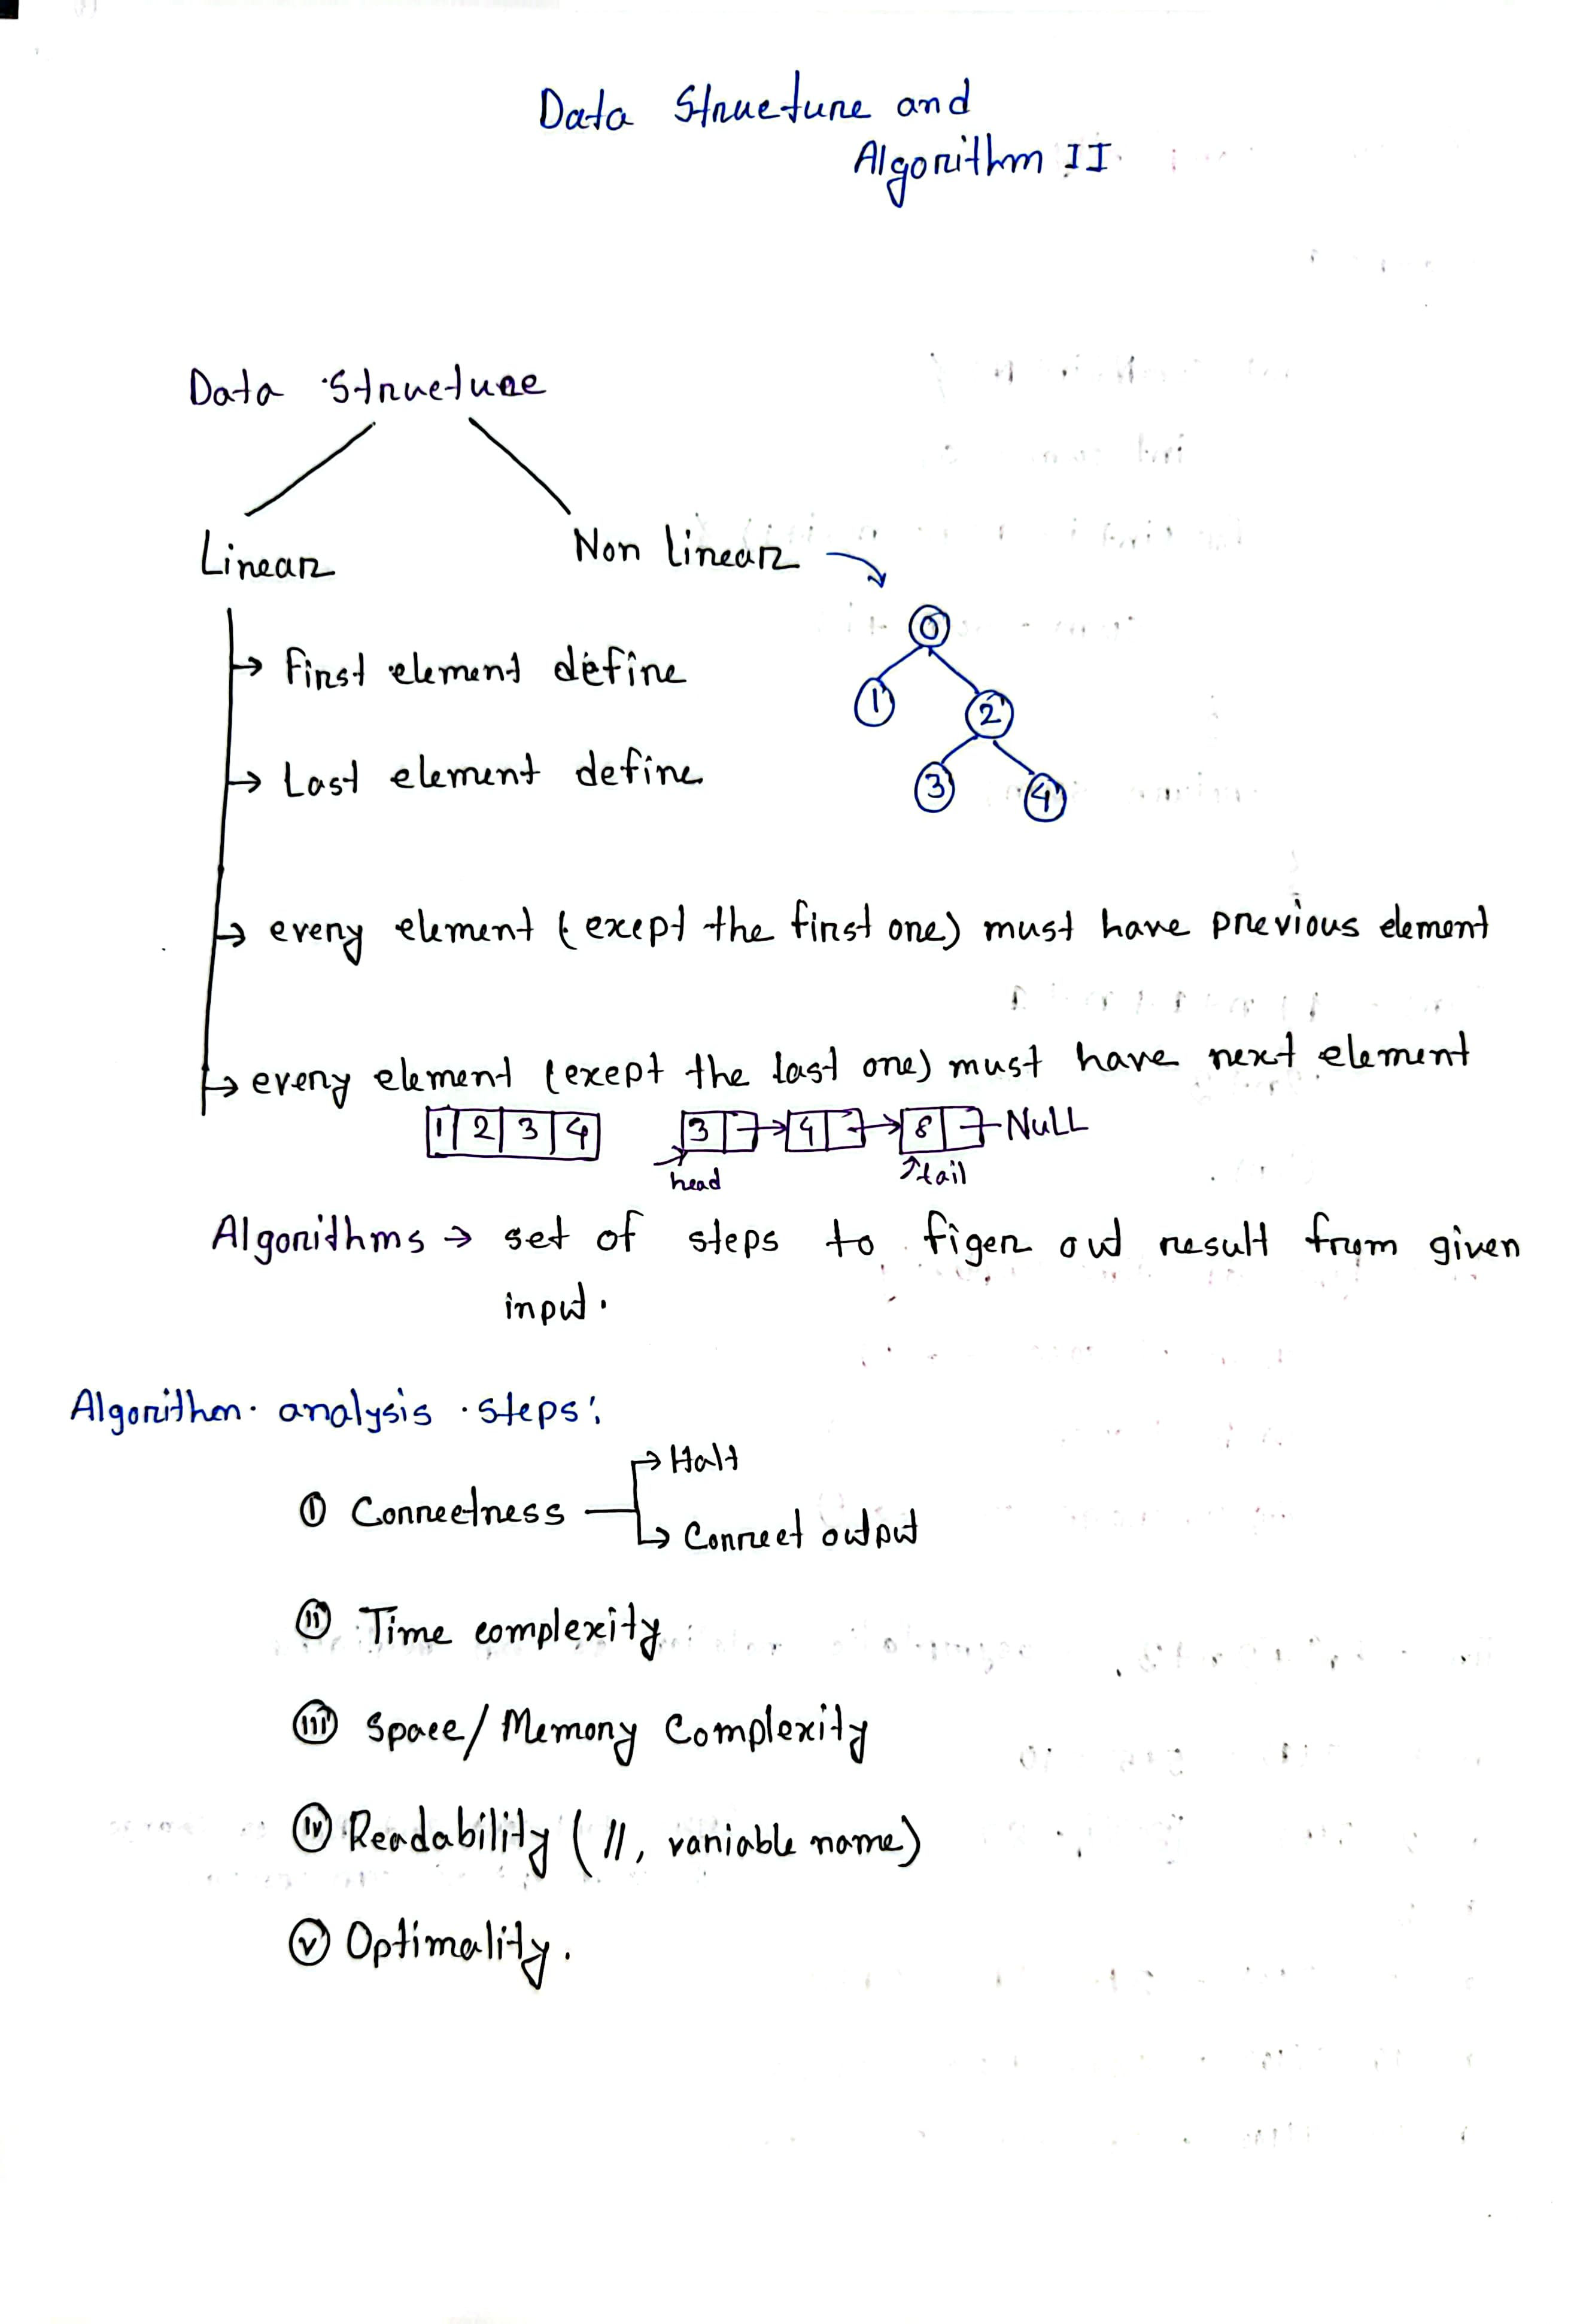 Data Structure and
Algorithm II
Data Structure
Linear
Non linear
0
First element define
1
2
Last element define
3
4
every element (exept the first one) must have previous element
every element (exept the last one) must have next element
1 2 3 4
3 4 8 NULL
head
tail
Algorithms → set of steps to figer out result from given
input.
Algorithm analysis steps:
Halt
i Correctness
Correct output
ii Time complexity
iii Space/Memory Complexity
iv Readability (//, variable name)
v Optimality.